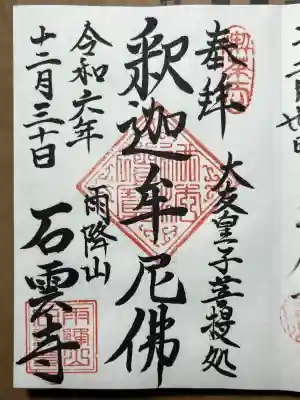 奉拝
大友皇子菩提処
釈迦牟尼佛
雨降山
石雲寺
令和六年
十二月三十日